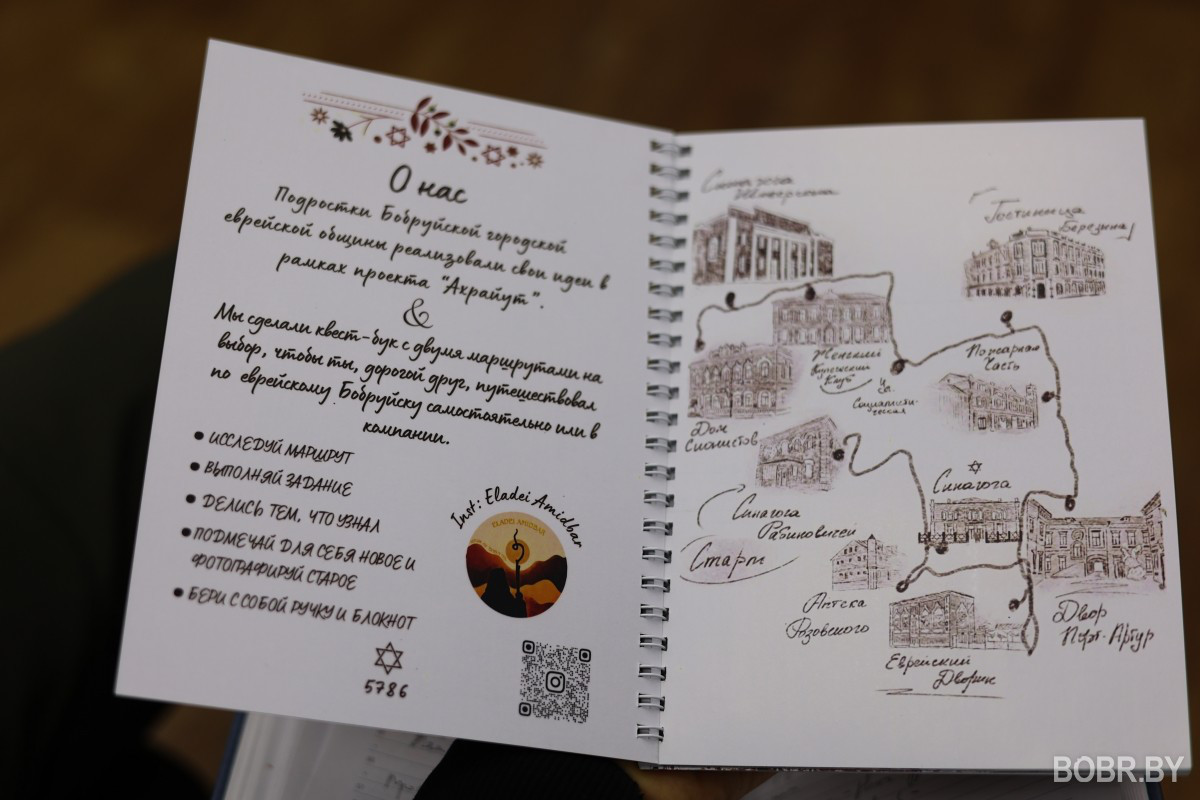 О нас
Подростки Бобруйской городской
еврейской общины реализовали свои идеи в
рамках проекта "Ахрайут".
&
Мы сделали квест-бук с двумя маршрутами на
выбор, чтобы ты, дорогой друг, путешествовал
по еврейскому Бобруйску самостоятельно или в
компании.
• ИССЛЕДУЙ МАРШРУТ
• ВЫПОЛНЯЙ ЗАДАНИЕ
• ДЕЛИСЬ ТЕМ, ЧТО УЗНАЛ
• ПОДМЕЧАЙ ДЛЯ СЕБЯ НОВОЕ И
ФОТОГРАФИРУЙ СТАРОЕ
• БЕРИ С СОБОЙ РУЧКУ И БЛОКНОТ
Inst: Eladei Amidbar
ELADEI AMIDBAR
5786
Синагога
Гостинница
Березина
Женский
Купеческий
Клуб
Пожарная
Часть
Дом
Сионистов
Синагога
Рабиновичей
Старт
Синагога
Аптека
Розовского
Еврейский
Дворик
Двор
Порт-Артур
BOBR.BY